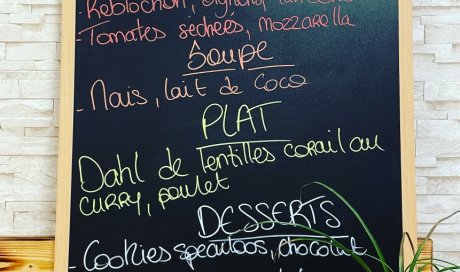 - Reblochon, oignons, lardons
- Tomates séchées, Mozzarella
Soupe
- Maïs, lait de coco
PLAT
Dahl de lentilles corail au
CURRY, poulet
DESSERTS
- Cookies spéculoos, chocolat